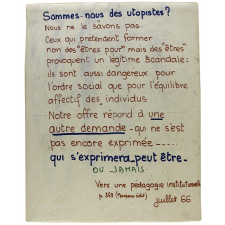 Sommes-nous des utopistes?
Nous ne le savons pas.
Ceux qui pretendent former
non des "êtres pour" mais des "êtres"
provoquent un legitime scandale:
ils sont aussi dangereux pour
l'ordre social que pour l'équilibre
affectif des individus
Notre offre répond à une
autre demande - qui ne s'est
pas encore exprimée
qui s'exprimera peut être -
OU JAMAIS
Vers une pédagogie institutionnelle
p. 269
juillet 66